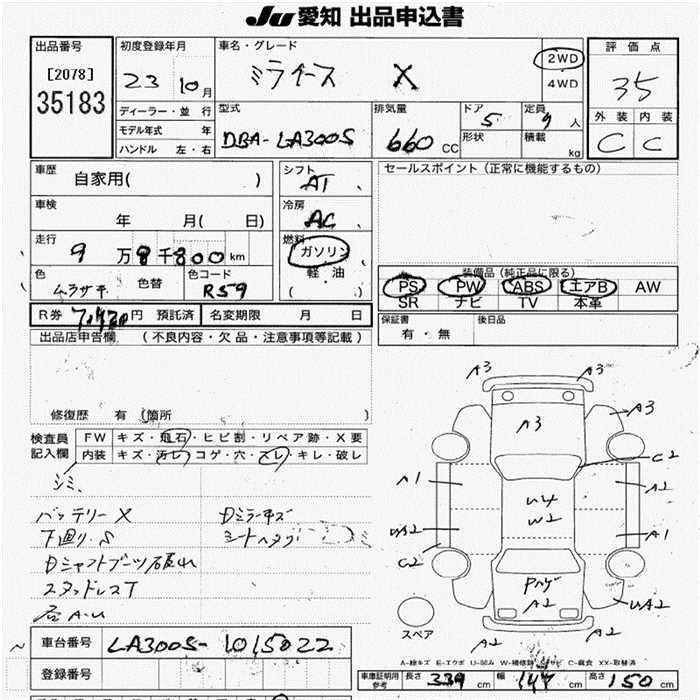 JU 愛知 出品申込書
出品番号
[2078]
35183
初度登録年月
23 10月
ディーラー・並行
モデル年式 年
ハンドル 左・右
車名・グレード
ミライース X
2WD
4WD
型式
DBA-LA300S
排気量
660 CC
ドア
5
形状
定員
人
積載
kg
評価点
35
外装 内装
C C
車歴
自家用( )
車検
年 月( 日)
走行
9万8千800km
色
ムラサキ
色替
色コード
R59
R券 7,420円 預託済
名変期限 月 日
シフト
AT
冷房
AC
燃料
ガソリン
軽油
( )
セールスポイント(正常に機能するもの)
装備品(純正品に限る)
PS PW ABS エアB AW
SR ナビ TV 本革
保証書
有・無
後日品
出品店申告欄 (不良内容・欠品・注意事項等記載)
修復歴 有(箇所 )
検査員記入欄
FW キズ・飛石・ヒビ割・リペア跡・X要
内装 キズ・汚レ・コゲ・穴・スレ・キレ・破レ
シミ
バッテリーX
下廻り.S
Dシャフトブーツ破れ
スタッドレスT
Dミラーキズ
A3
A3
A3
A3
C2
A1
A2
U4
W2
A1
C2
A2
UA2
A2
A2
スペア
車台番号 LA300S-1015022
登録番号
A-線キズ E-エクボ U-凹み W-補修跡 S-サビ C-腐食 XX-取替済
車庫証明用参考 長さ 339 cm 幅 147 cm 高さ 150 cm